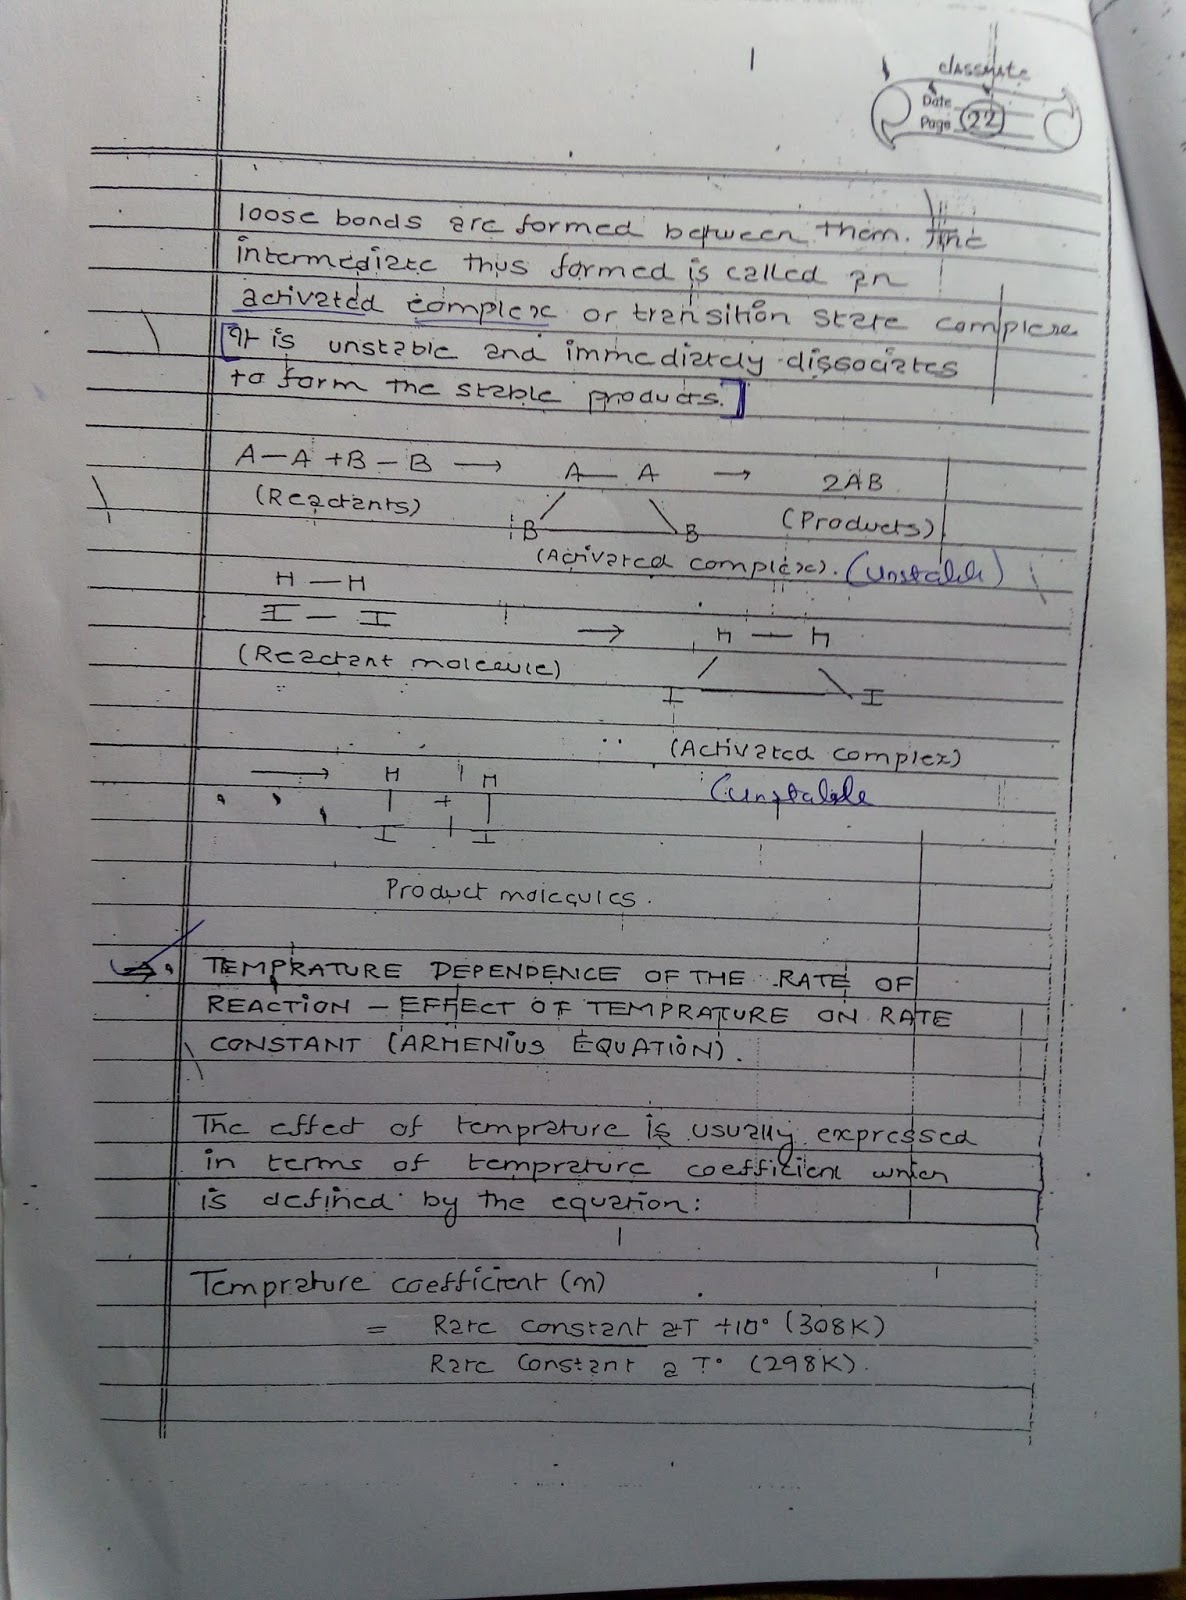 classmate
Date
Page 22
loose bonds are formed between them. The
intermediate thus formed is called an
activated complex or transition state complex
It is unstable and immediately dissociates
to form the stable products.
A—A + B—B → A—A → 2AB
(Reactants) (Products)
B B
(Activated complex). (unstable)
H—H
I—I → H—H
(Reactant molecule)
I I
(Activated complex)
(unstable
→ H + H
I I
Product molecules.
TEMPRATURE DEPENDENCE OF THE RATE OF
REACTION – EFFECT OF TEMPRATURE ON RATE
CONSTANT (ARHENIUS EQUATION).
The effect of temprature is usually expressed
in terms of temprature coefficient which
is defined by the equation:
Temprature coefficient (n)
= Rate constant at T +10° (308K)
Rate constant a T° (298K).